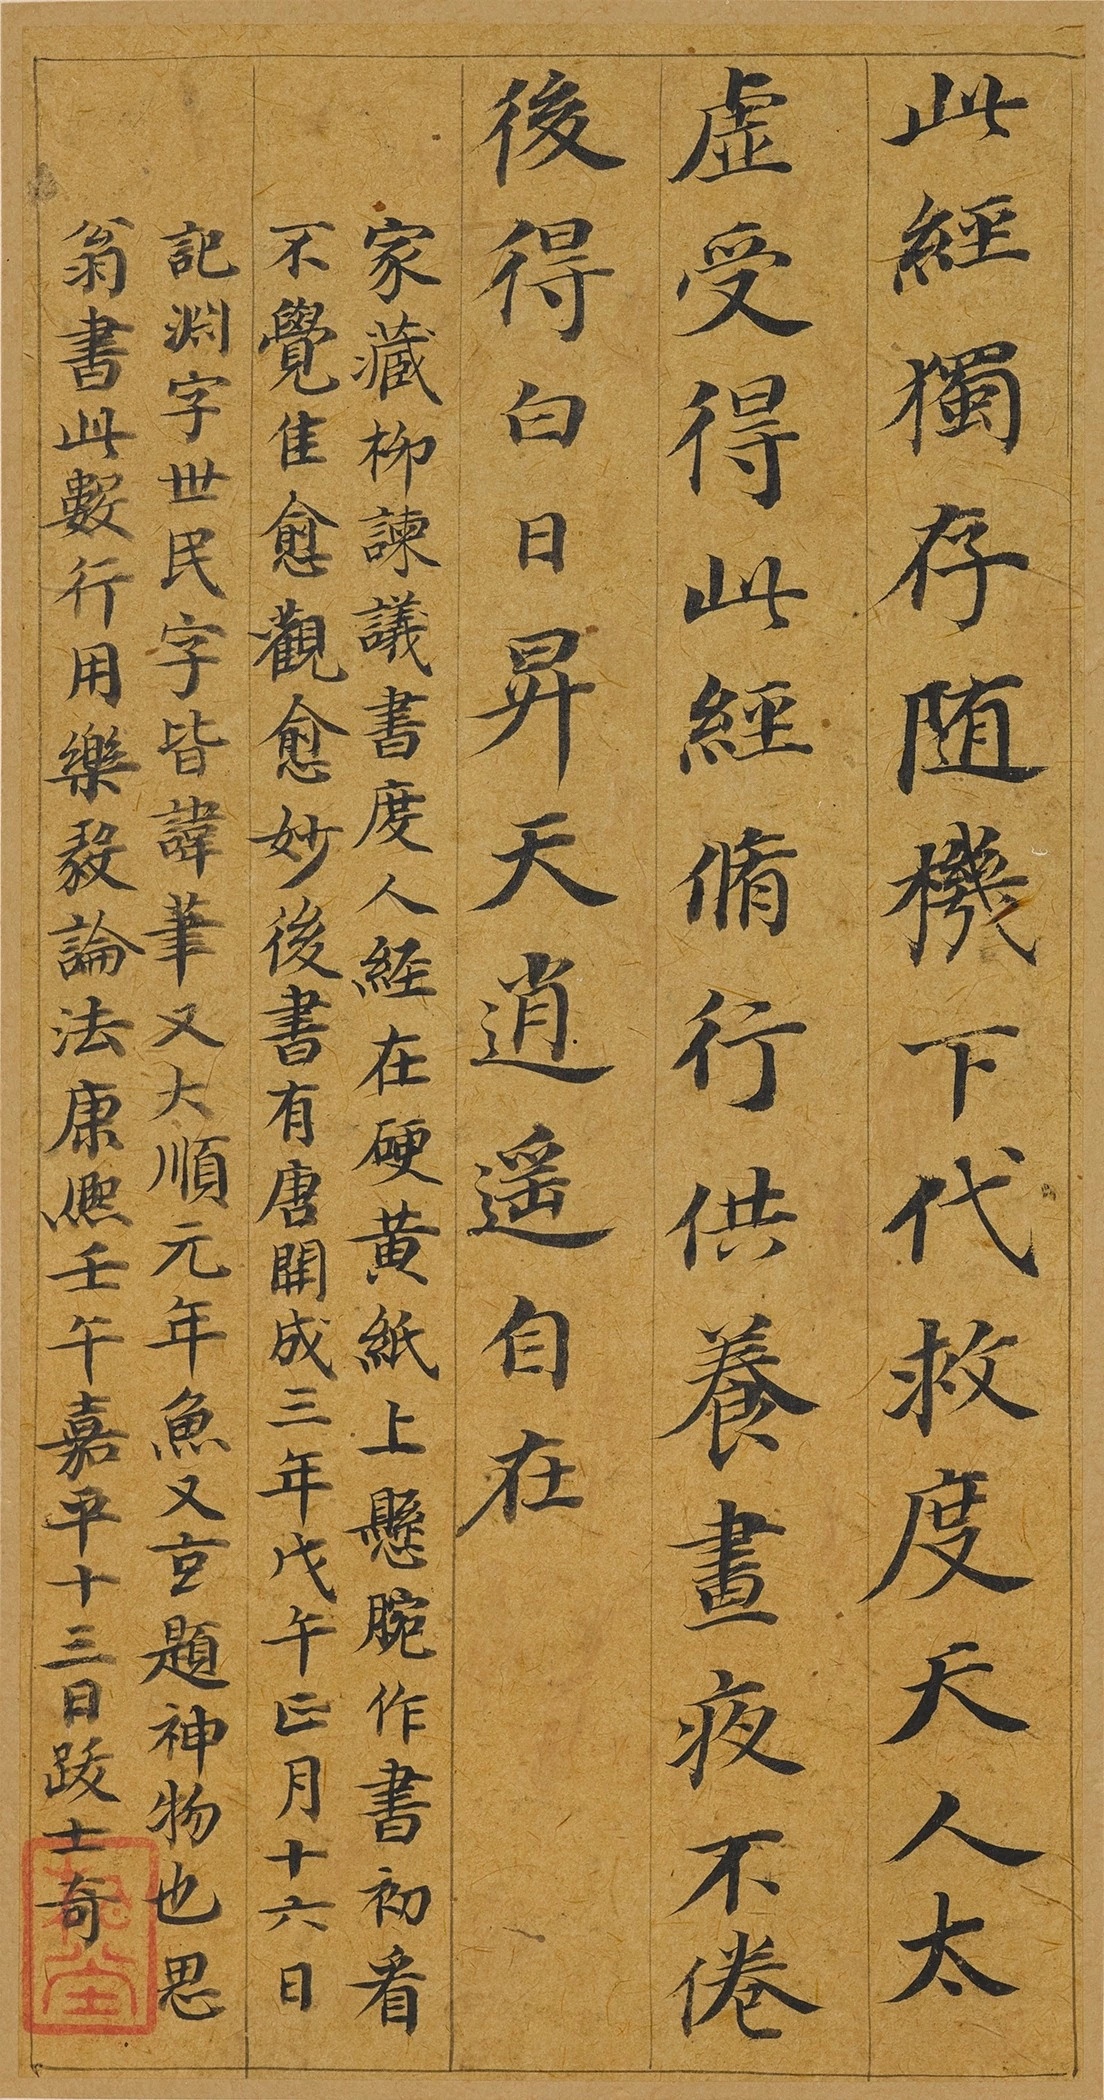 此經獨存随機下代救度天人太
虛受得此經脩行供養晝夜不倦
後得白日昇天逍遥自在
家藏柳諫議書度人經在硬黄紙上懸腕作書初看
不覺佳愈觀愈妙後書有唐開成三年戊午正月十六日
記淵字世民字皆諱筆又大順元年魚又玄題神物也思
翁書此數行用樂毅論法康熙壬午嘉平十三日跋士奇